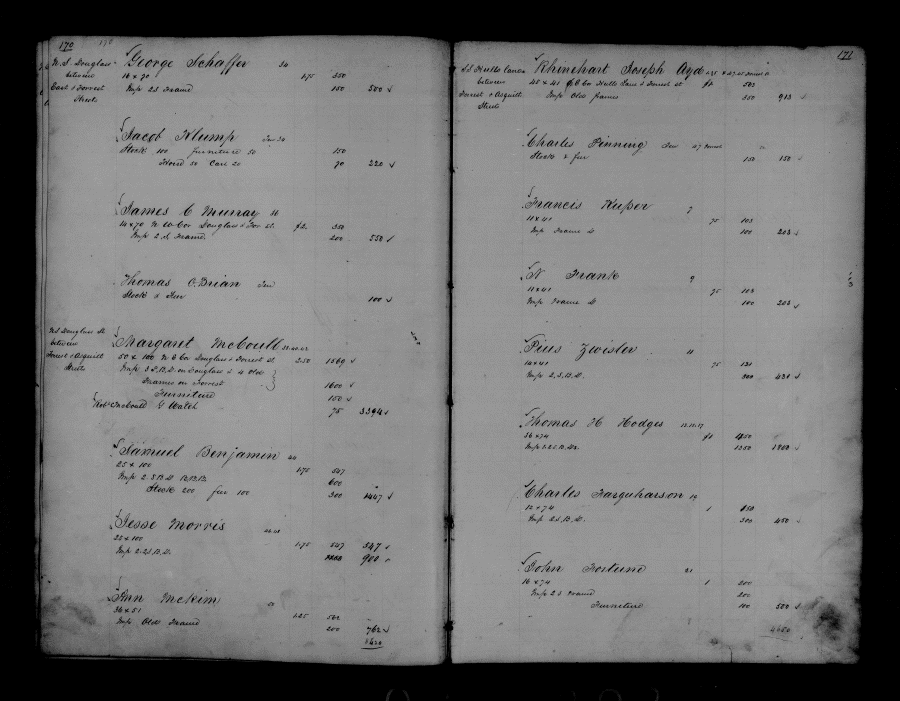 170
George Schaffer 34
N. S. Douglass
between
East & Forrest
Streets
16 x 70 1.75 350
Imp 2 S Framd 150 500
Jacob Klump Ten 34
Stock 100 furniture 50 150
Hors 50 Cart 20 70 220
James C Murray 36
14 x 70 N W Cor Douglass & For St. $2. 350
Imp 2 S Framd. 200 550
Thomas O.Brian Ten
Stock & Fur 100
N. S. Douglass St.
between
Forrest & Asquith
Streets
Margaret McCoull
50 x 100 N E Cor Douglass & Forrest St. 2.50 1569
Imp 3 S.B.D. on Douglass & 4 Olde
Frames on Forrest 1600
Furniture 150
Robt McCoull G Watch 75 3394
Samuel Benjamin 40
25 x 100 1.75 547
Imp 2. S.B.D. 600
Stock 200 fur 100 300 1447
Jesse Morris
25 x 100 1.75 547 547
Imp 2. 2S.B.D. 900
Ann McKim
36 x 51 1.25 562
Imp Old Framd 200 762
8420
171
Rhinehart Joseph Ayd
S. S. Hulls Lane
between
Forrest & Asquith
Streets
45 x 41 Cor Hulls Lane & Forrest St $1. 563
Imp Old frames 350 913
Charles Pinning Ten
Stock & fur 150 150
Francis Kuper 7
11 x 41 75 103
Imp Frame D 100 203
N Frank 9
11 x 41 75 103
Imp Frame D 100 203
Pius Zwisler 11
14 x 41 75 131
Imp 2. S.B.D. 300 431
Thomas H Hodges 13.15.17
36 x 74 $1 450
1350 1800
Charles Farquharson 19
12 x 74 1 150
Imp 2S.B.D. 300 450
John Fortune 21
16 x 74 1 200
Imp 2 S Framd 200
Furniture 100 500
4650